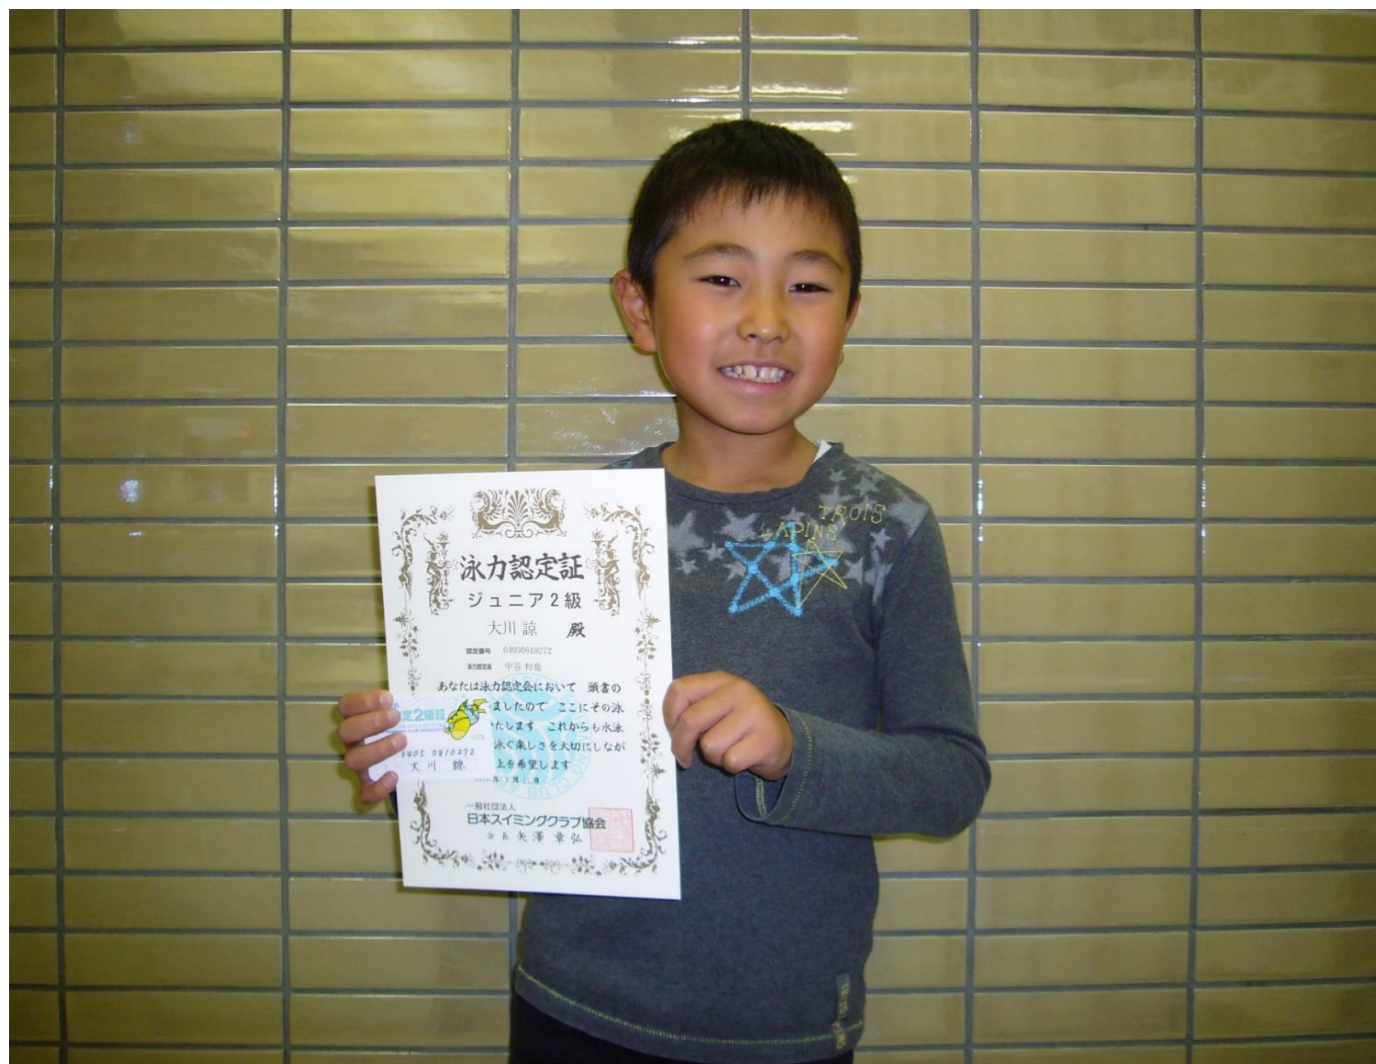 泳力認定証
ジュニア2級
大川 諒 殿
認定番号 04050810272
泳力認定員 中谷 和亀
あなたは泳力認定会において 頭書の
ましたので ここにその泳
いたします これからも水泳
泳ぐ楽しさを大切にしなが
上を希望します
一般社団法人
日本スイミングクラブ協会
会長 矢澤 章弘
定2級証
0405 0810272
大川 諒
TROIS
LAPINS